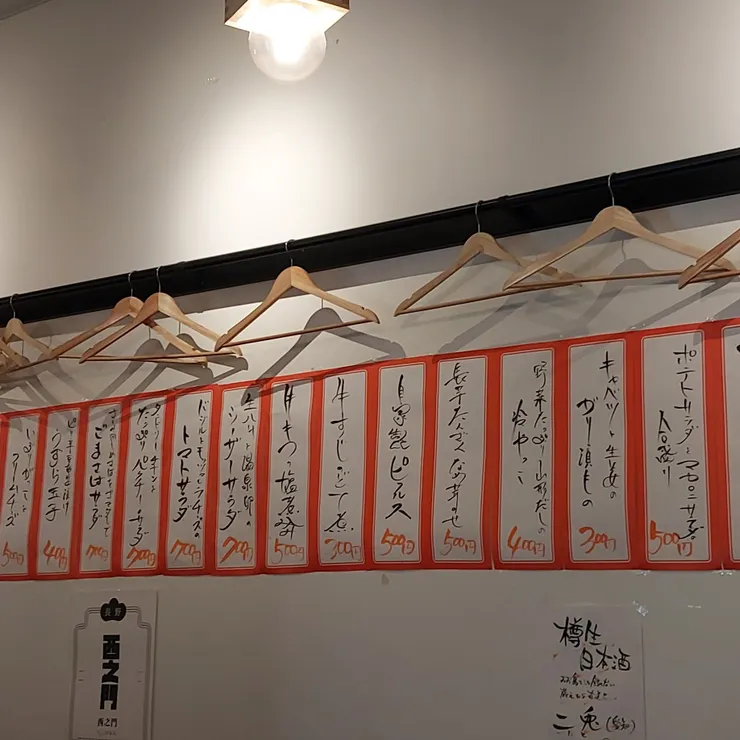 ポテトサラダとマカロニサラダの
合盛り
500円
キャベツと生姜の
ガリ漬もの
300円
野菜たっぷり山形だしの
冷やっこ
400円
長芋たんざくなめ茸のせ
500円
自家製ピクルス
500円
牛すじどて煮
300円
牛もつの塩煮込み
500円
生ハムと温泉卵の
シーザーサラダ
700円
バジルとモッツァレラチーズの
トマトサラダ
700円
タンドリーチキンと
たっぷりパクチーのサラダ
700円
ごまさばサラダ
700円
うずら玉子
400円
いぶりがっこと
クリームチーズ
500円
長野
西之門
西之門
樽生
日本酒
二兎